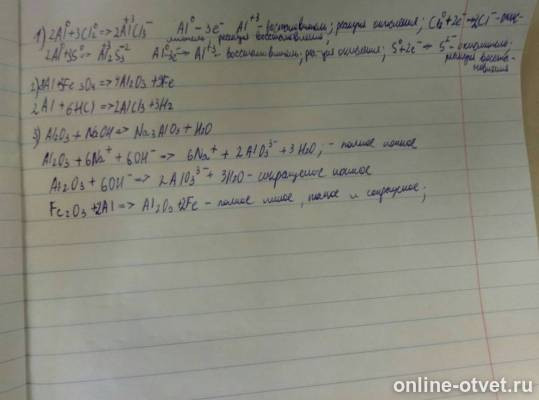 1) 2Al⁰+3Cl₂⁰=>2Al⁺³Cl₃⁻ Al⁰-3e⁻ Al⁺³ - восстановитель; реакция окисления; Cl₂⁰+2e⁻→2Cl⁻-окис-
реакция восстановления;
2Al⁰+3S⁰=> Al₂⁺³S₃⁻² Al⁰-3e⁻→ Al⁺³- восстановитель; реакция окисления; S⁰+2e⁻→ S²⁻-окислитель;
реакция восста-
новления
2) 8Al+3Fe₃O₄=>4Al₂O₃+9Fe
2Al+6HCl=>2AlCl₃+3H₂
3) Al₂O₃+NaOH=>Na₃AlO₃+H₂O
Al₂O₃+6Na⁺+6OH⁻=> 6Na⁺+2AlO₃³⁻+3H₂O; - полное ионное
Al₂O₃+6OH⁻=> 2AlO₃³⁻+3H₂O-сокращенное ионное
Fe₂O₃+2Al=>Al₂O₃+2Fe- полное ионное, полное и сокращенное;
online-otvet.ru